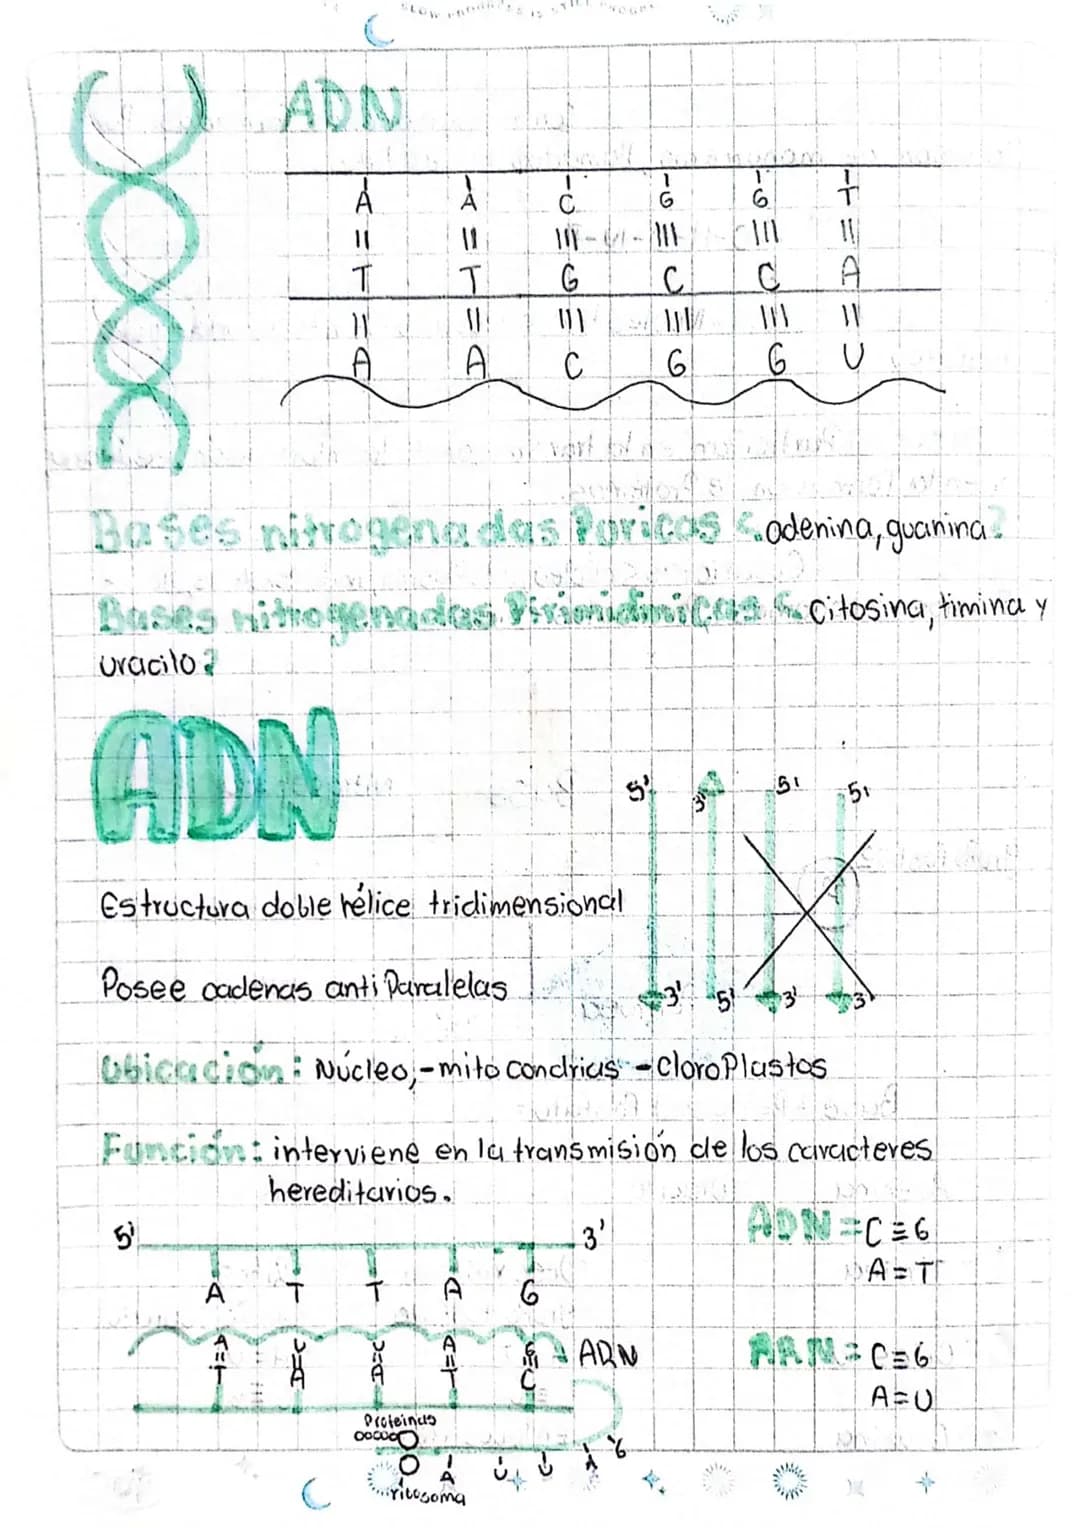 ADN
A A C G G T
T T G C C A
A A C G G U
Bases nitrogenadas Puricas ¿adenina, guanina?
Bases nitrogenadas Pirimidinicas ¿Citosina, timina y
uracilo?
ADN
5' 3' 5' 5'
Estructura doble hélice tridimensional
Posee cadenas anti Paralelas
3' 5' 3' 3'
Ubicación: Núcleo,-mitocondrias -CloroPlastos
Función: interviene en la transmisión de los caracteres
hereditarios.
ADN = C≡G
A=T
5' 3'
A T T A G
ARN = C≡G
A=U
A U U A G ARN
T A A T C
Proteinas
A U U A G
ribosoma